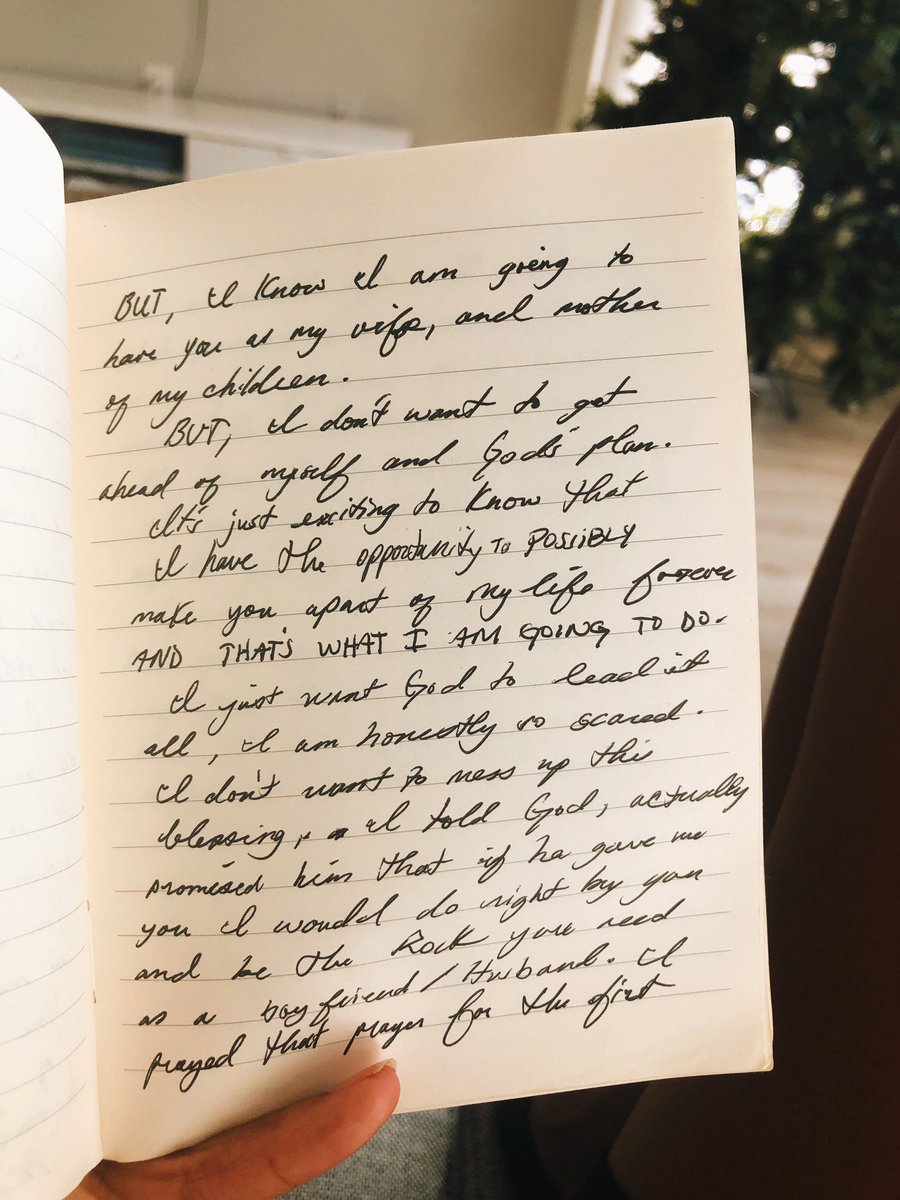 BUT, I know I am going to
have you as my wife, and mother
of my children.
BUT, I don't want to get
ahead of myself and God's plan.
It's just exciting to know that
I have the opportunity to POSSIBLY
make you apart of my life forever
AND THAT'S WHAT I AM GOING TO DO.
I just want God to lead it
all, I am honestly so scared.
I don't want to mess up this
blessing, I told God, actually
promised him that if he gave me
you I would do right by you
and be the Rock you need
as a boyfriend/Husband. I
prayed that prayer for the first